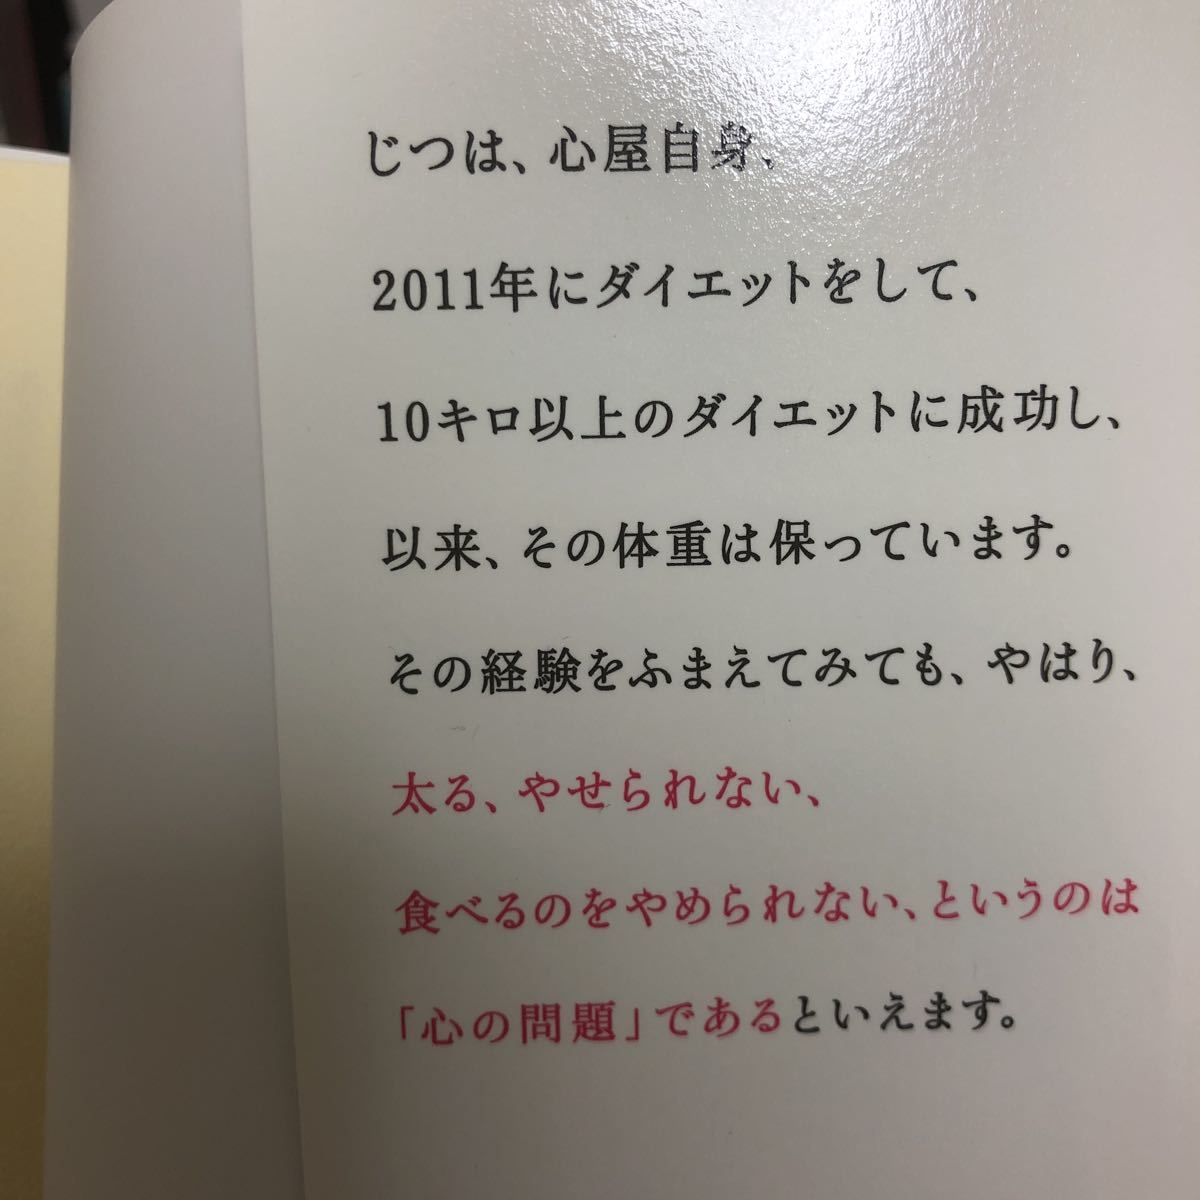 じつは、心屋自身、
2011年にダイエットをして、
10キロ以上のダイエットに成功し、
以来、その体重は保っています。
その経験をふまえてみても、やはり、
太る、やせられない、
食べるのをやめられない、というのは
「心の問題」であるといえます。